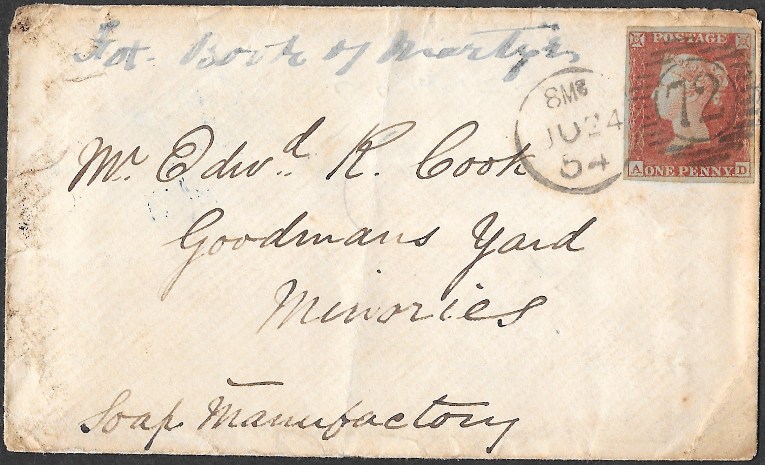 Fox Book of Martyrs
POSTAGE
72
8M6
JU 24
54
A ONE PENNY. D
Mr. Edwd. R. Cook
Goodmans Yard
Minories
Soap Manufactory